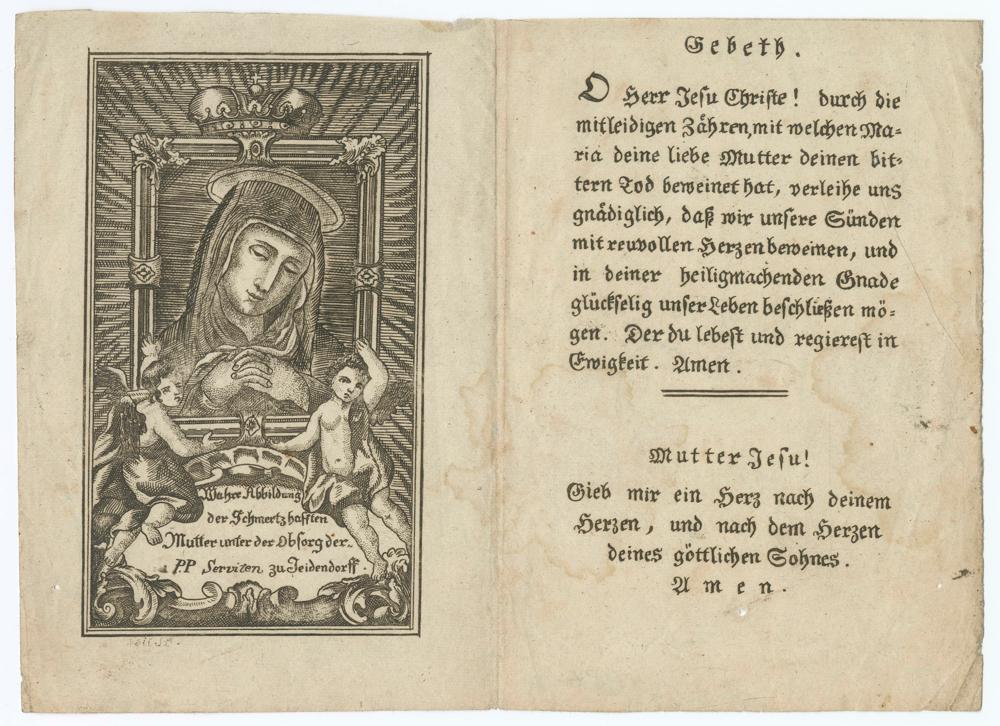 Wahre Abbildung
der Schmertzhafften
Mutter unter der Obsorg der
PP Serviten zu Jeidendorff.
Gebeth.
O Herr Jesu Christe! durch die
mitleidigen Zähren, mit welchen Ma=
ria deine liebe Mutter deinen bit=
tern Tod beweinet hat, verleihe uns
gnädiglich, daß wir unsere Sünden
mit reuvollen Herzen beweinen, und
in deiner heiligmachenden Gnade
glückselig unser Leben beschließen mö=
gen. Der du lebest und regierest in
Ewigkeit. Amen.
Mutter Jesu!
Gieb mir ein Herz nach deinem
Herzen, und nach dem Herzen
deines göttlichen Sohnes.
Amen.